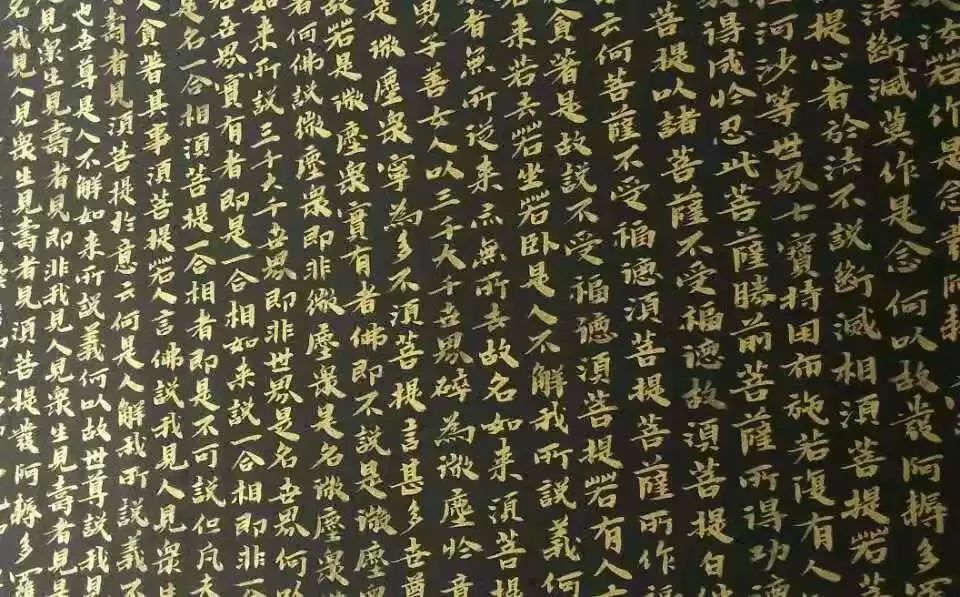 汝若作是念發阿耨
法斷滅莫作是念何以故發阿耨多羅
提心者於法不說斷滅相須菩提若菩
河沙等世界七寶持用布施若復有人
我得成於忍此菩薩勝前菩薩所得功德
菩提以諸菩薩不受福德故須菩提白佛
云何菩薩不受福德須菩提菩薩所作福
貪著是故說不受福德須菩提若有人
若来若去若坐若卧是人不解我所說義何
者無所從来亦無所去故名如来須菩提
男子善女人以三千大千世界碎為微塵於意
是微塵衆寧為多不須菩提言甚多世尊
故若是微塵衆實有者佛即不說是微塵
何佛說微塵衆即非微塵衆是名微塵衆
如来所說三千大千世界即非世界是名世界何以
若世界實有者即是一合相如来說一合相即非一
是名一合相須菩提一合相者即是不可說但凡夫
人貪著其事須菩提若人言佛說我見人見衆生
壽者見須菩提於意云何是人解我所說義不
也世尊是人不解如来所說義何以故世尊說我見
見衆生見壽者見即非我見人見衆生見壽者見是
名我見人見衆生見壽者見須菩提發阿耨多羅